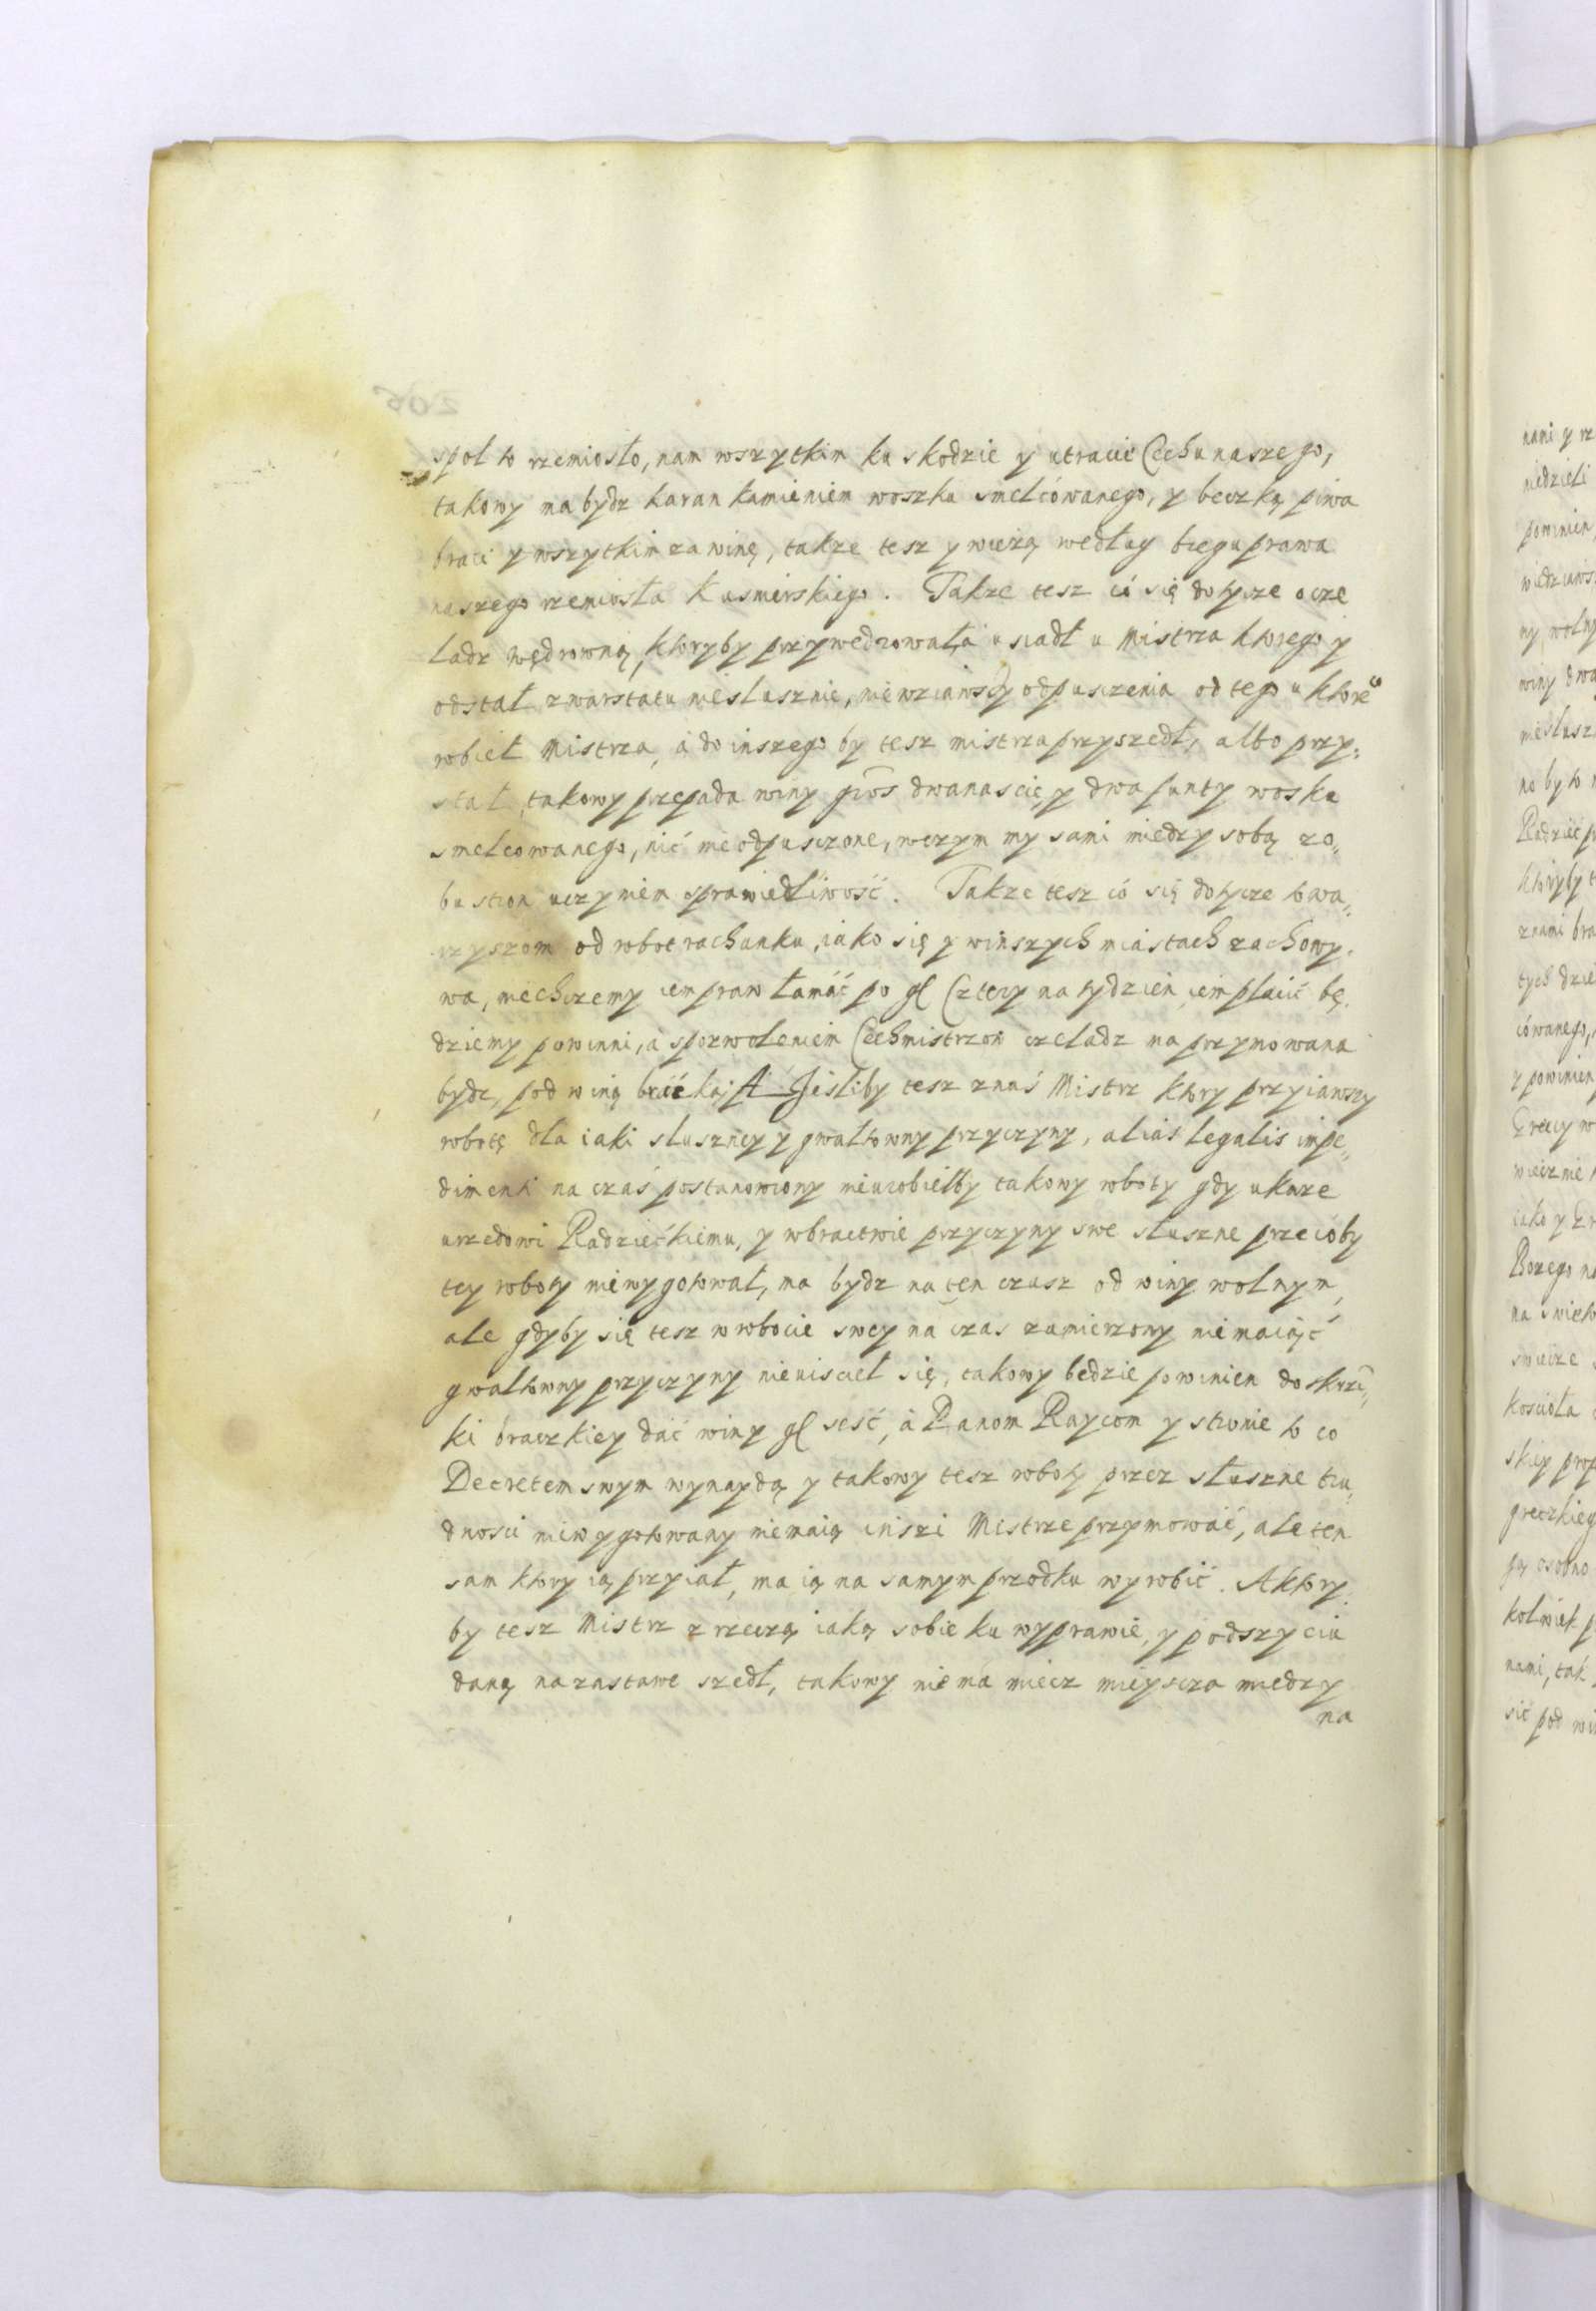 spol to rzemiosło, nam wszytkim ku skodzie y utracie Cechu naszego,
takowy ma bydz karan kamieniem woszku smelcówanego, y beczką piwa
braci y wszytkim za winę, takze tesz y wiezą według biegu prawa
naszego rzemiosła Kusmirskiego. Takze tesz có się dotycze o cze
ladz wędrowną, ktoryby przywedrowała, á usiadł u Mistrza ktorego y
odstał z warstatu nieslusznie, niewziawszy odpusczenia od tego u ktore°
robieł Mistrza, á do inszego by tesz mistrza przyszedł, albo przy:
stał, takowy przepada winy gros dwanascie y dwa funty wosku
smelcowanego, nić nieodpusczone, wczym my sami miedzy sobą zo„
bu stron uczyniem sprawiedliwość. Takze tesz có się dotycze towa„
rzyszom od robot rachunku, iako się y winszych miastach zachowy.
wa, niechczemy iem praw łamáć po gl Cztery na tydzien iem płacić bę.
dziemy powinni, á spozwoleniem Cechmistrzow czeladz ma przymowana
bydz, pod winą braćką. A Jesliby tesz znaś Mistrz ktory przyiawszy
robotę dla iaki sluszney y gwałtowny przyczyny, alias legalis impe„
dimenti na czás postanowiony nieurobiełby takowy roboty gdy ukaze
urzedowi Radziećkiemu, y wbractwie przyczyny swe słuszne przecóby
tey roboty niewygotował, ma bydz na ten czasz od winy wolnym,
ale gdyby się tesz w robocie swey na czas zamierzony niemaiąć
gwałtowny przyczyny nieuiscieł się, takowy bedzie powinien do skrzi„
ki braczkiey dać winy gl sesć, á Panom Raycom y stronie to co
Decretem swym wynaydą y takowy tesz roboty przez słuszne tru„
dnosci niewygotowany niemaią inszi Mistrze przymować, ale ten
sam ktory ią przyiał, ma ią na samym przodku wyrobić. A ktory
by tesz Mistrz z rzeczą iaką sobie ku wyprawie, y podszyciu
daną na zastawe szedł, takowy niema miecz mieyscza miedzy
na